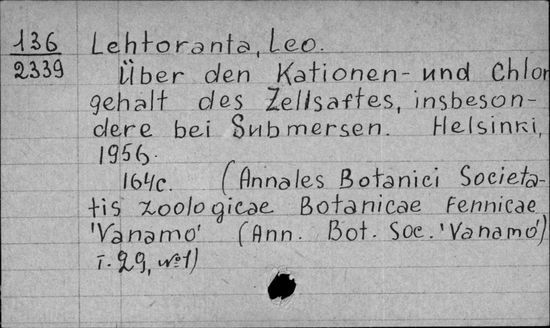 136 Lehtoranta, Leo.
2339 Über den Kationen- und Chlor
gehalt des Zellsaftes, insbeson-
dere bei Submersen. Helsinki,
1956.
164c. (Annales Botanici Societa-
tis zoologicae Botanicae Fennicae
'Vanamo' (Ann. Bot. Soc. 'Vanamo')
T. 29, №1)